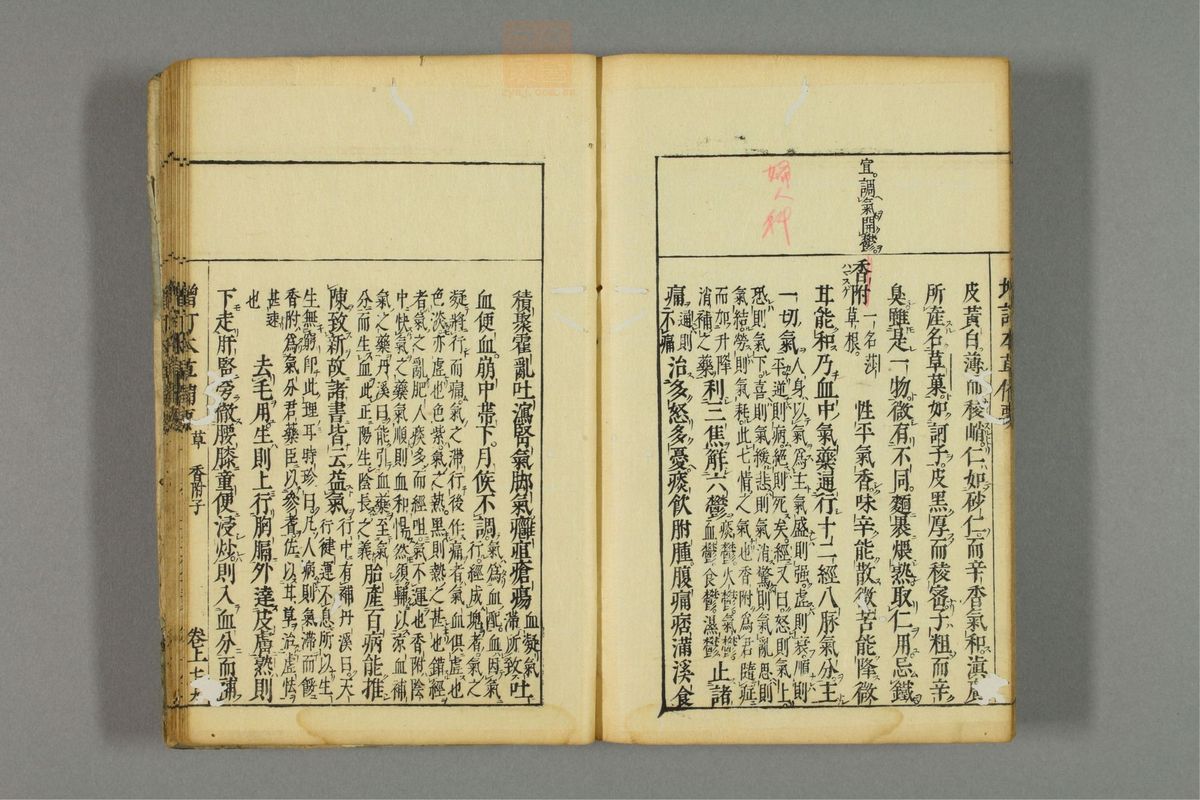 宜調氣開鬱
婦人科
皮黃白薄而稜峭仁如砂仁而辛香氣和滇廣
所產名草菓如訶子皮黑厚而稜密子粗而辛
臭雖是一物微有不同麵裹煨熟取仁用忌鐵
香附一名莎草根性平氣香味辛能散微苦能降微
甘能和乃血中氣藥通行十二經八脉氣分主
一切氣人身以氣為生氣盛則强虛則衰順則平逆則病絕則死矣經又曰怒則氣上
恐則氣下喜則氣緩悲則氣消驚則氣亂思則氣結勞則氣耗此七情之氣也香附為君隨症
而加升降消補之藥利三焦解六鬱痰鬱火鬱氣鬱血鬱食鬱濕鬱止諸
痛通則不痛治多怒多憂痰飲胕腫腹痛痞滿溪食
積聚霍亂吐瀉腎氣脚氣癰疽瘡瘍血凝氣滯所致吐
血便血崩中帶下月候不調氣為血配血因氣行經成塊者氣之
凝將行而痛氣之滯行後作痛者氣血俱虛也色淡亦虛也色紫氣之熱黑則熱之甚也錯經
者氣之亂肥人痰多而經阻氣不運也香附陰中快氣之藥氣順則血和暢然須輔以涼血補
氣之藥丹溪曰能引血藥至氣分而生血此正陽生陰長之義胎產百病能推
陳致新故諸書皆云益氣行中有補丹溪曰天行健運不息所以生
生無窮即此理耳時珍曰凡人病則氣滯而餒香附為氣分君藥臣以參耆佐以甘草治虛怯
甚速也去毛用生則上行胸膈外達皮膚熟則
下走肝腎旁徹腰膝童便浸炒則入血分而補
增訂本草備要 草 香附子 卷上七